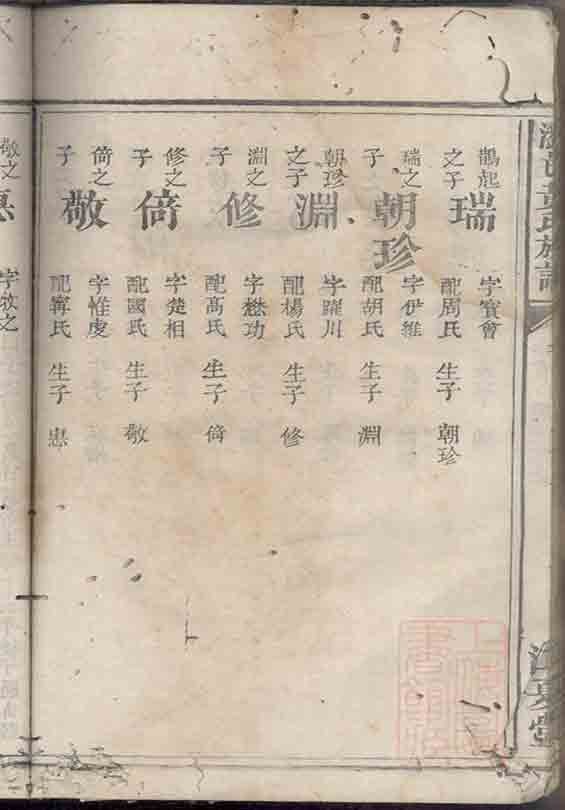 鵲起
之子
瑞
字寳會
配周氏 生子 朝珍
瑞之
子
朝珍
字伊維
配胡氏 生子 淵
朝珍
之子
淵
字躍川
配楊氏 生子 修
淵之
子
修
字懋功
配高氏 生子 倚
修之
子
倚
字楚相
配國氏 生子 敬
倚之
子
敬
字惟虔
配寗氏 生子 惠
敬之
惠
字敬之